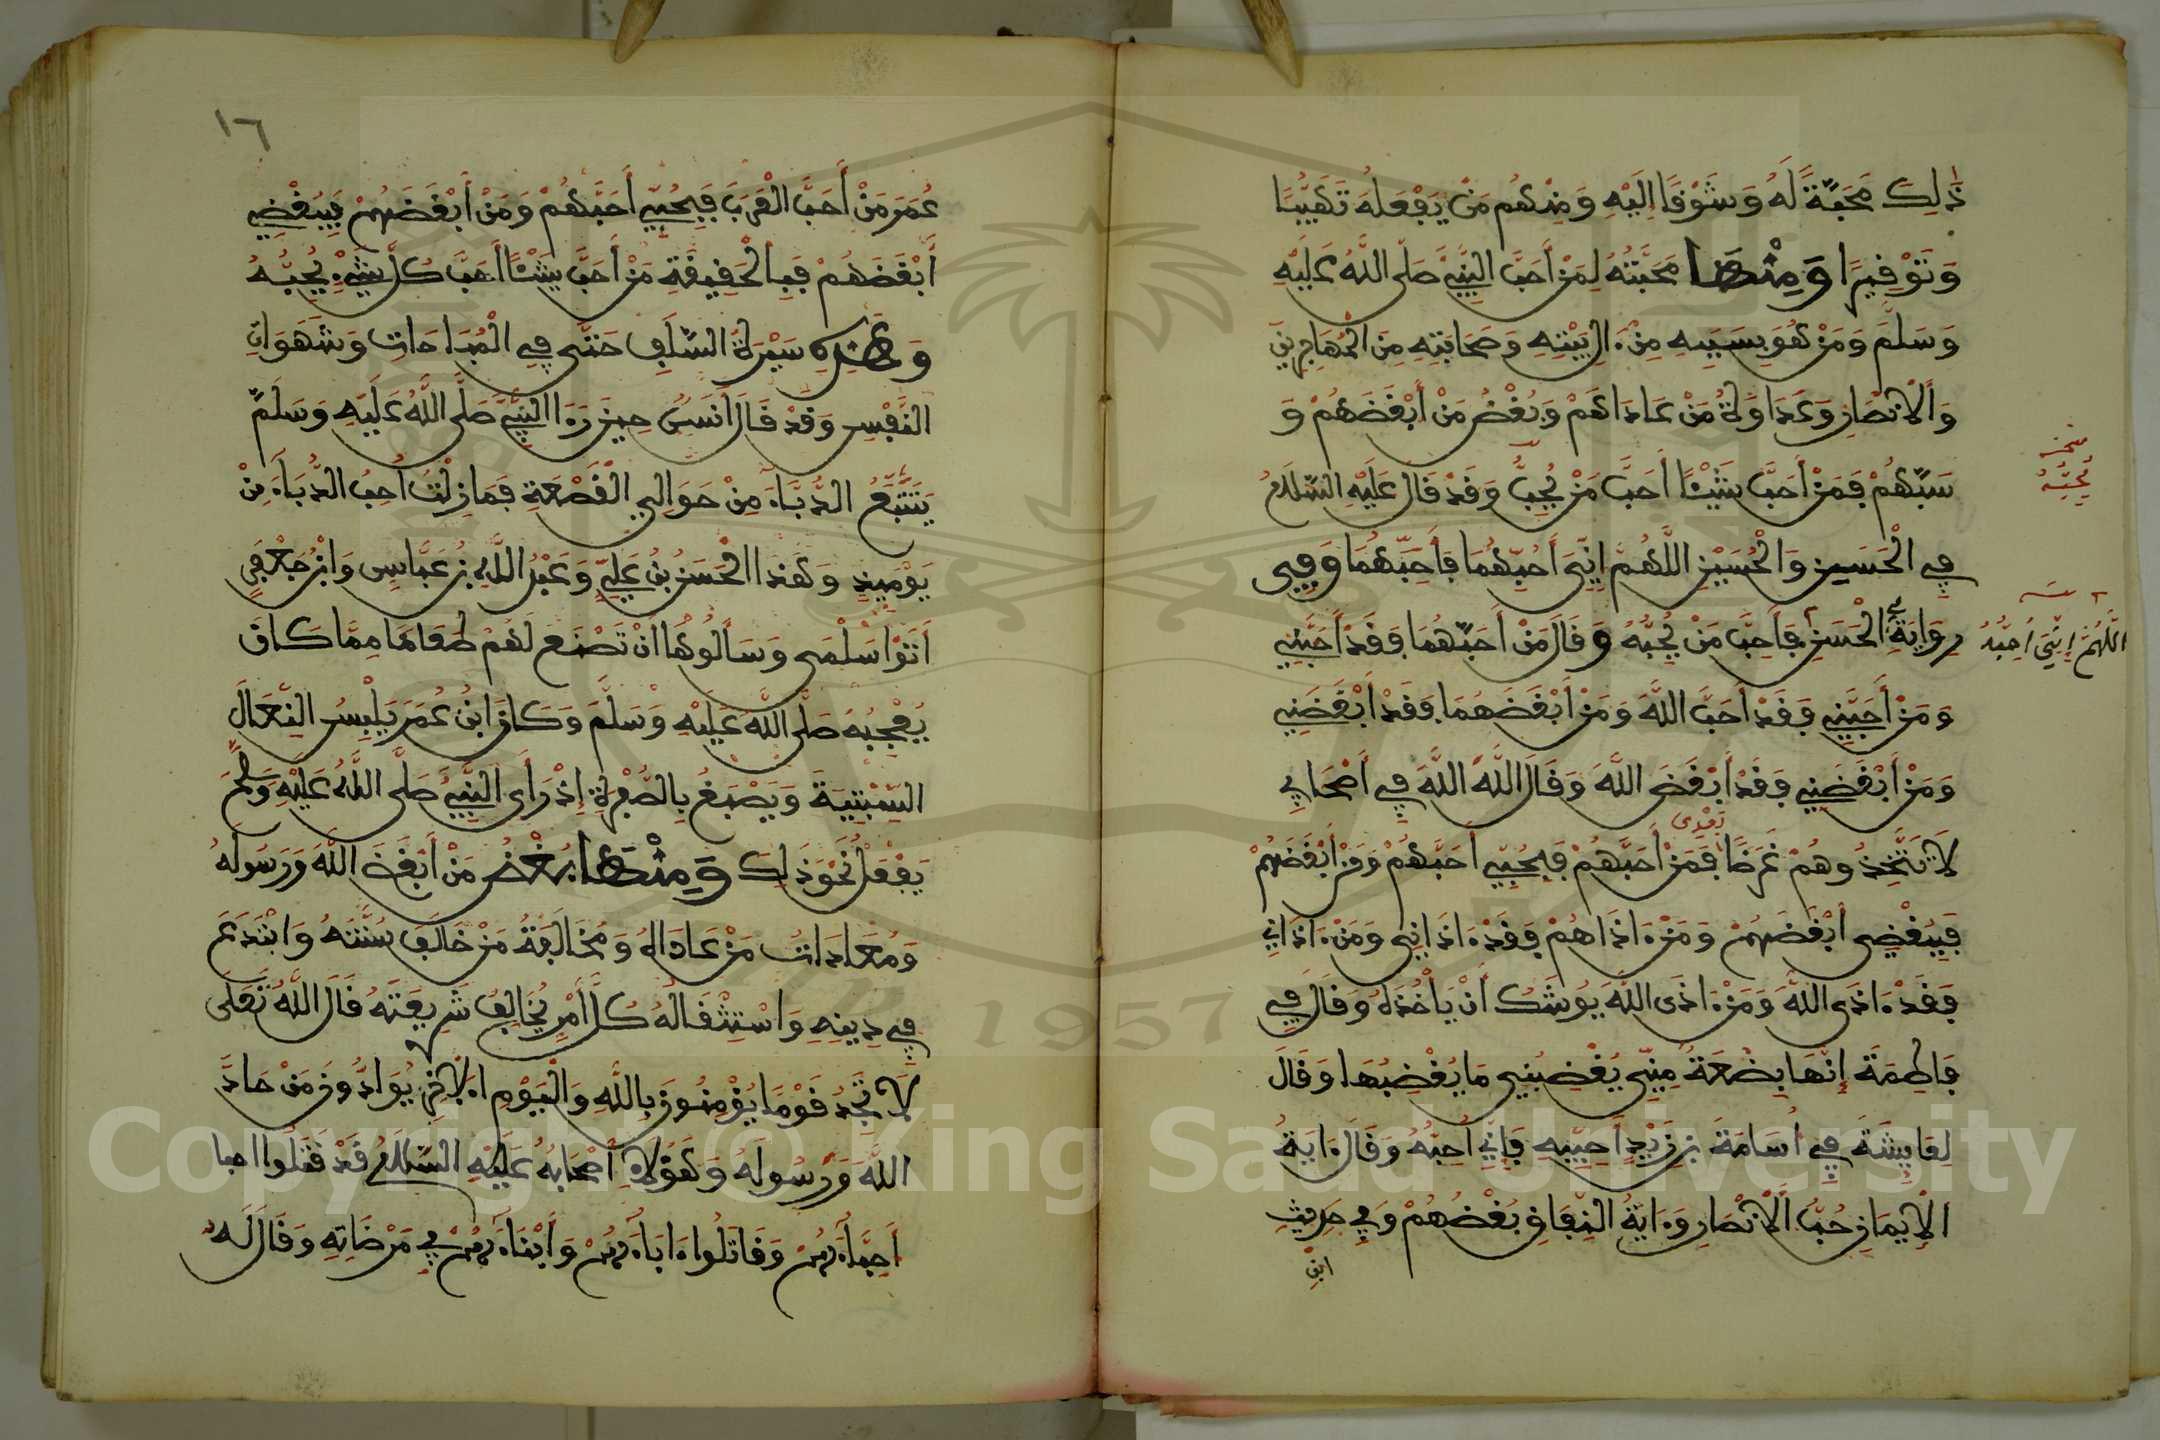 ذَلِكَ مَحَبَّةً لَهُ وَشَوْقًا إِلَيْهِ وَمِنْهُم مَّنْ يَفْعَلُهُ تَهَيُّبًا
وَتَوْقِيرًا وَمِنْهَا مَحَبَّتُهُ لِمَنْ أَحَبَّ النَّبِيَّ صَلَّى اللَّهُ عَلَيْهِ
وَسَلَّمَ وَمَنْ هُوَ بِسَبَبِهِ مِنْ ءَالِ بَيْتِهِ وَصَحَابَتِهِ مِنَ الْمُهَاجِرِينَ
وَالْأَنْصَارِ وَعَدَاوَةُ مَنْ عَادَاهُمْ وَبُغْضُ مَنْ أَبْغَضَهُمْ وَ
سَبَّهُمْ فَمَنْ أَحَبَّ شَيْئًا أَحَبَّ مَنْ يُحِبُّ وَقَدْ قَالَ عَلَيْهِ السَّلَامُ
يُحِبُّهُ
فِي الْحَسَنِ وَالْحُسَيْنِ اللَّهُمَّ إِنِّي أُحِبُّهُمَا فَأَحِبَّهُمَا وَفِي
رِوَايَةٍ فِي الْحَسَنِ فَأَحِبَّ مَنْ يُحِبُّهُ وَقَالَ مَنْ أَحَبَّهُمَا فَقَدْ أَحَبَّنِي
اللَّهُمَّ إِنِّي أُحِبُّهُ
وَمَنْ أَحَبَّنِي فَقَدْ أَحَبَّ اللَّهَ وَمَنْ أَبْغَضَهُمَا فَقَدْ أَبْغَضَنِي
وَمَنْ أَبْغَضَنِي فَقَدْ أَبْغَضَ اللَّهَ وَقَالَ اللَّهَ اللَّهَ فِي أَصْحَابِي
لَا تَتَّخِذُوهُمْ غَرَضًا بَعْدِي فَمَنْ أَحَبَّهُمْ فَبِحُبِّي أَحَبَّهُمْ وَمَنْ أَبْغَضَهُمْ
فَبِبُغْضِي أَبْغَضَهُمْ وَمَنْ ءَاذَاهُمْ فَقَدْ ءَاذَانِي وَمَنْ ءَاذَانِي
فَقَدْ ءَاذَى اللَّهَ وَمَنْ ءَاذَى اللَّهَ يُوشِكُ أَنْ يَأْخُذَهُ وَقَالَ فِي
فَاطِمَةَ إِنَّهَا بِضْعَةٌ مِنِّي يُغْضِبُنِي مَا يُغْضِبُهَا وَقَالَ
لِعَائِشَةَ فِي أُسَامَةَ بْنِ زَيْدٍ أَحِبِّيهِ فَإِنِّي أُحِبُّهُ وَقَالَ ءَايَةُ
الْإِيمَانِ حُبُّ الْأَنْصَارِ وَءَايَةُ النِّفَاقِ بُغْضُهُمْ وَفِي حَدِيثِ
ابْنِ
١٦
عُمَرَ مَنْ أَحَبَّ الْعَرَبَ فَبِحُبِّي أَحَبَّهُمْ وَمَنْ أَبْغَضَهُمْ فَبِبُغْضِي
أَبْغَضَهُمْ فَبِالْحَقِيقَةِ مَنْ أَحَبَّ شَيْئًا أَحَبَّ كُلَّ شَيْءٍ يُحِبُّهُ
وَهَذِهِ سَيْرَةُ السَّلَفِ حَتَّى فِي الْمُبَاحَاتِ وَشَهَوَاتِ
النَّفْسِ وَقَدْ قَالَ أَنَسٌ حِينَ رَءَا النَّبِيَّ صَلَّى اللَّهُ عَلَيْهِ وَسَلَّمَ
يَتَتَبَّعُ الدُّبَّاءَ مِنْ حَوَالَيِ الْقَصْعَةِ فَمَا زِلْتُ أُحِبُّ الدُّبَّاءَ مِنْ
يَوْمِئِذٍ وَهَذَا الْحَسَنُ بْنُ عَلِيٍّ وَعَبْدُ اللَّهِ بْنُ عَبَّاسٍ وَابْنُ جَعْفَرٍ
أَتَوْا سَلْمَى وَسَأَلُوهَا أَنْ تَصْنَعَ لَهُمْ طَعَامًا مِمَّا كَانَ
يُعْجِبُهُ صَلَّى اللَّهُ عَلَيْهِ وَسَلَّمَ وَكَانَ ابْنُ عُمَرَ يَلْبَسُ النِّعَالَ
السِّبْتِيَّةَ وَيَصْبَغُ بِالصُّفْرَةِ إِذْ رَأَى النَّبِيَّ صَلَّى اللَّهُ عَلَيْهِ وَسَلَّمَ
يَفْعَلُ نَحْوَ ذَلِكَ وَمِنْهَا بُغْضُ مَنْ أَبْغَضَ اللَّهَ وَرَسُولَهُ
وَمُعَادَاتُ مَنْ عَادَاهُ وَمُخَالَفَةُ مَنْ خَالَفَ سُنَّتَهُ وَابْتَدَعَ
فِي دِينِهِ وَاسْتِثْقَالُهُ كُلَّ أَمْرٍ يُخَالِفُ شَرِيعَتَهُ قَالَ اللَّهُ تَعَلَى
لَا تَجِدُ قَوْمًا يُؤْمِنُونَ بِاللَّهِ وَالْيَوْمِ الْآخِرِ يُوَادُّونَ مَنْ حَادَّ
اللَّهَ وَرَسُولَهُ وَهَؤُلَاءِ أَصْحَابُهُ عَلَيْهِ السَّلَامُ قَدْ قَتَلُوا
أَحِبَّاءَهُمْ وَقَاتَلُوا ءَابَاءَهُمْ وَأَبْنَاءَهُمْ فِي مَرْضَاتِهِ وَقَالَ لَهُ
1957
Copyright © King Saud University